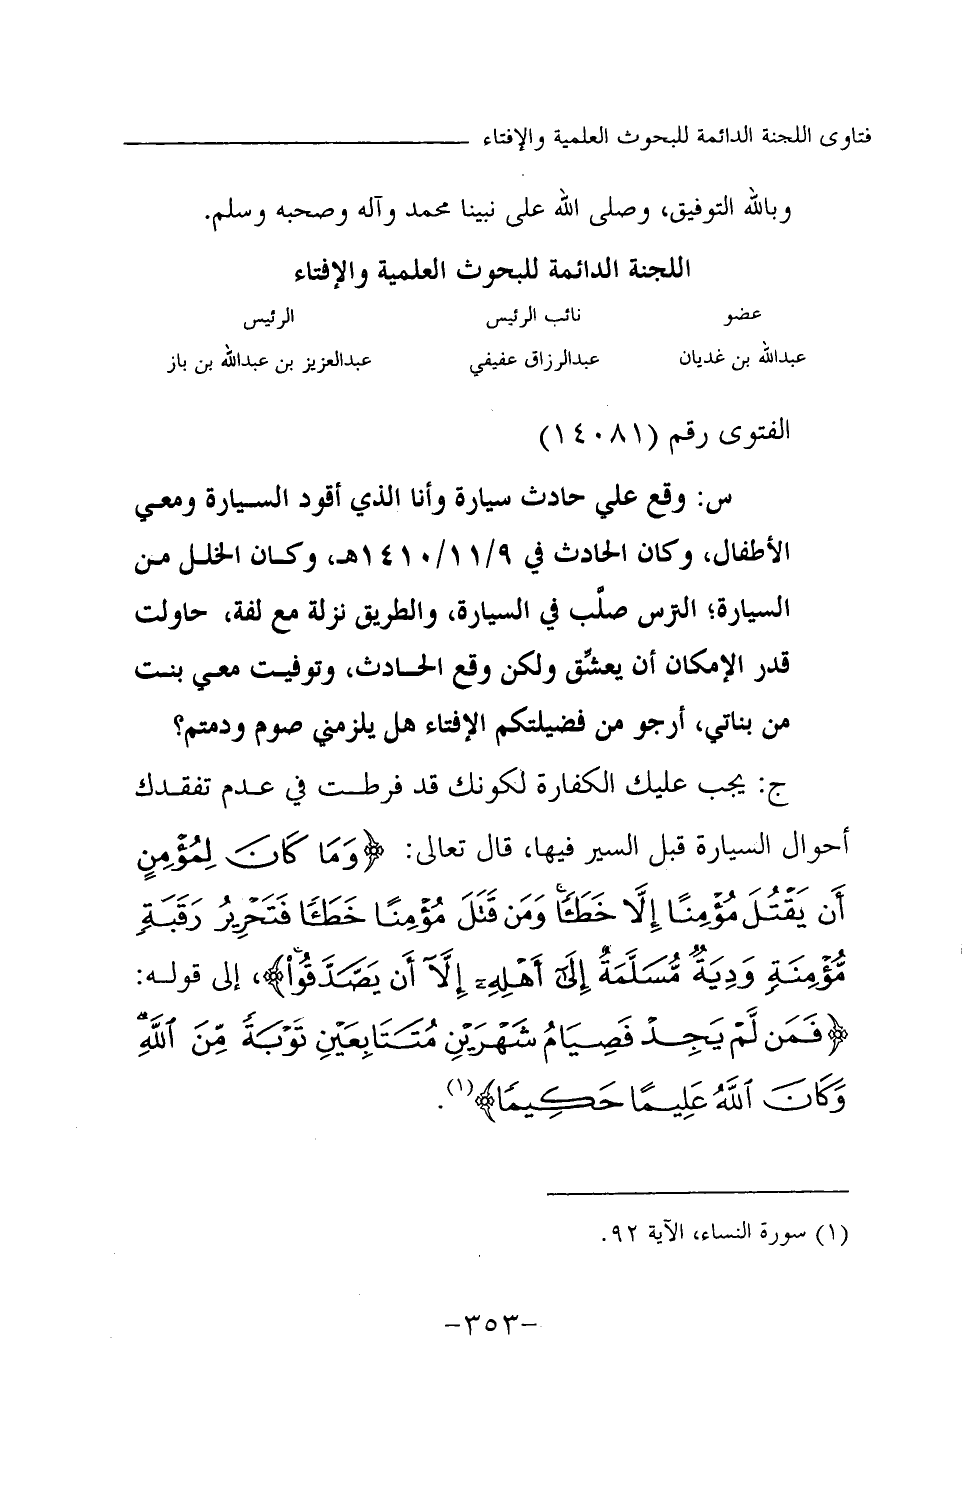 فتاوى اللجنة الدائمة للبحوث العلمية والإفتاء
وبالله التوفيق، وصلى الله على نبينا محمد وآله وصحبه وسلم.
اللجنة الدائمة للبحوث العلمية والإفتاء
عضو نائب الرئيس الرئيس
عبدالله بن غديان عبدالرزاق عفيفي عبدالعزيز بن عبدالله بن باز
الفتوى رقم (١٤٠٨١)
س: وقع علي حادث سيارة وأنا الذي أقود السيارة ومعي
الأطفال، وكان الحادث في ١٤١٠/١١/٩هـ، وكان الخلل من
السيارة؛ الترس صلَّب في السيارة، والطريق نزلة مع لفة، حاولت
قدر الإمكان أن يعشِّق ولكن وقع الحادث، وتوفيت معي بنت
من بناتي، أرجو من فضيلتكم الإفتاء هل يلزمني صوم ودمتم؟
ج: يجب عليك الكفارة لكونك قد فرطت في عدم تفقدك
أحوال السيارة قبل السير فيها، قال تعالى: ﴿وَمَا كَانَ لِمُؤْمِنٍ
أَن يَقْتُلَ مُؤْمِنًا إِلَّا خَطَـًٔا ۚ وَمَن قَتَلَ مُؤْمِنًا خَطَـًٔا فَتَحْرِيرُ رَقَبَةٍ
مُّؤْمِنَةٍ وَدِيَةٌ مُّسَلَّمَةٌ إِلَىٰٓ أَهْلِهِۦٓ إِلَّآ أَن يَصَّدَّقُوا۟ ۚ﴾، إلى قوله:
﴿فَمَن لَّمْ يَجِدْ فَصِيَامُ شَهْرَيْنِ مُتَتَابِعَيْنِ تَوْبَةً مِّنَ ٱللَّهِ ۗ
وَكَانَ ٱللَّهُ عَلِيمًا حَكِيمًا﴾(١).
(١) سورة النساء، الآية ٩٢.
-٣٥٣-